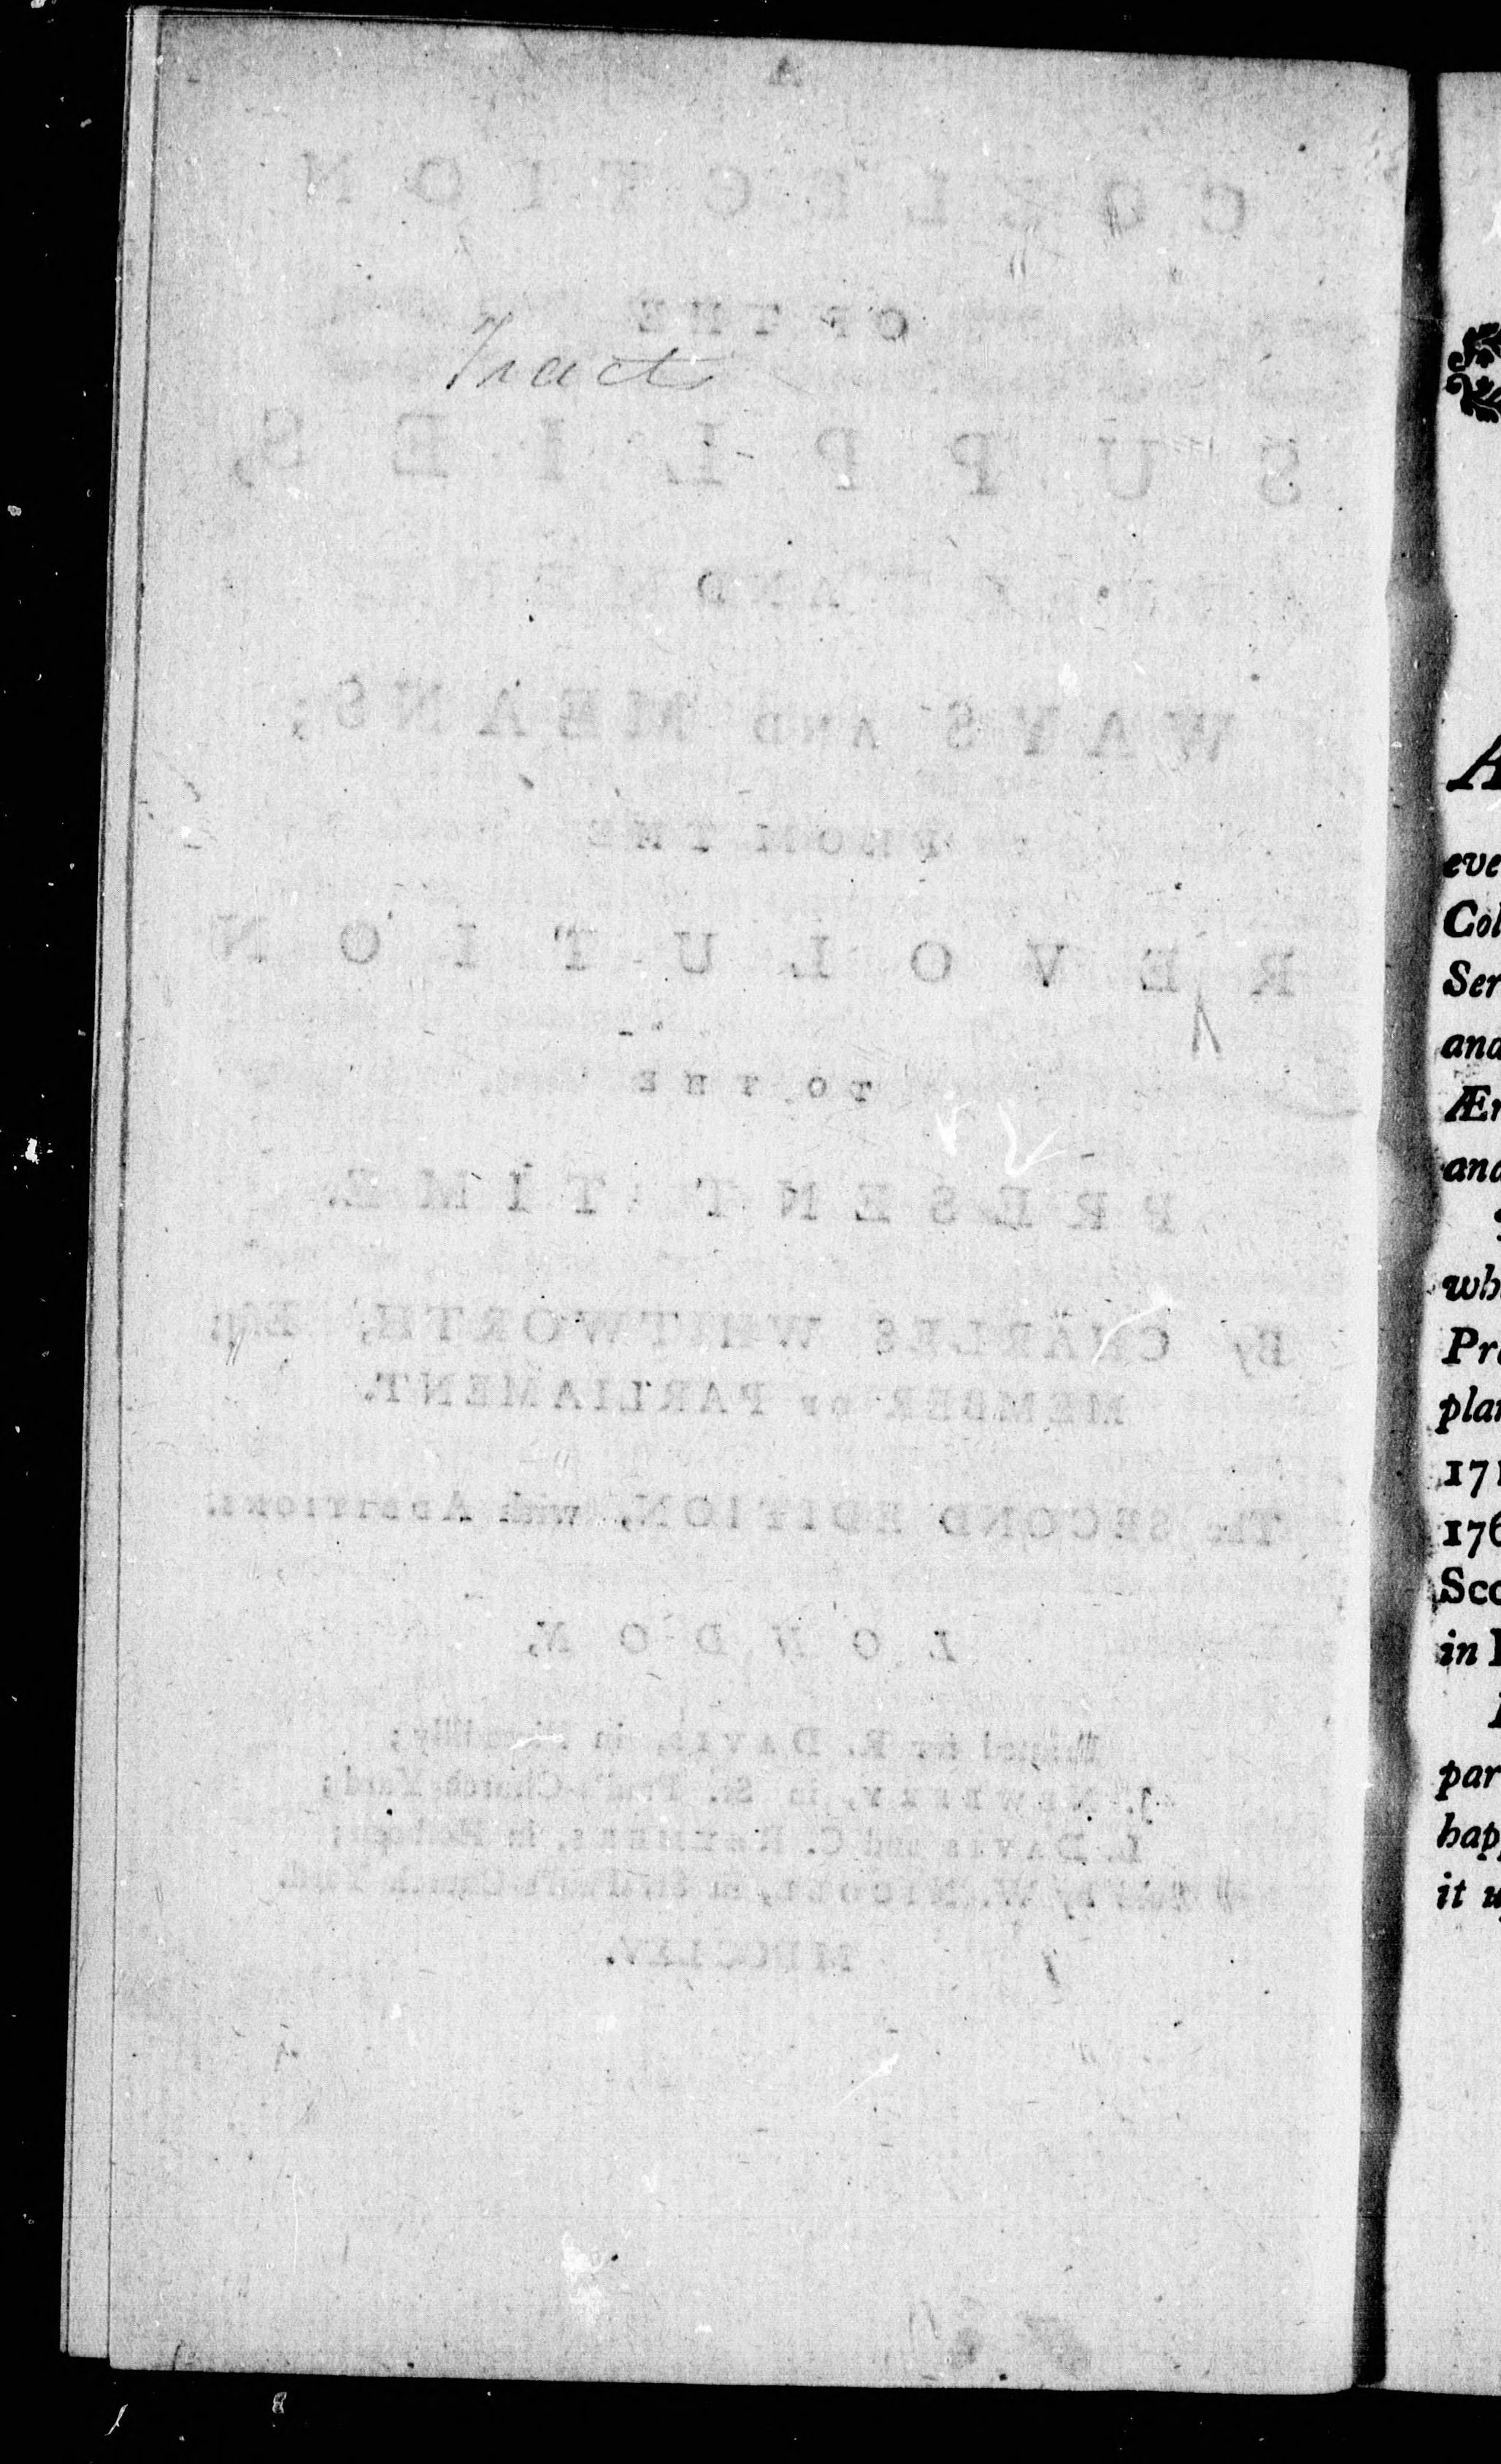 A
COLLECTION
OF THE
Tracts
SUPPLIES,
AND
WAYS AND MEANS;
FROM THE
REVOLUTION
TO THE
PRESENT TIME.
By CHARLES WHITWORTH, Esq;
MEMBER OF PARLIAMENT.
The SECOND EDITION, with ADDITIONS.
LONDON,
Printed for R. DAVIS, in Piccadilly;
J. NEWBERY, in St. Paul's Church-Yard;
L. DAVIS and C. REYMERS, in Holborn;
by W. NICOLL, in St. Paul's Church Yard.
A
eve
Col
Ser
and
Æ
and
wh
Pr
pla
171
176
Sco
in
par
hap
it u